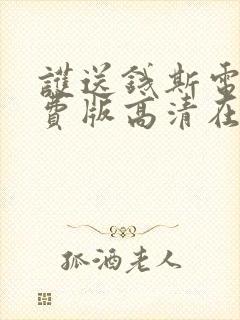 護送錢斯電
費版高清在
孤酒老人